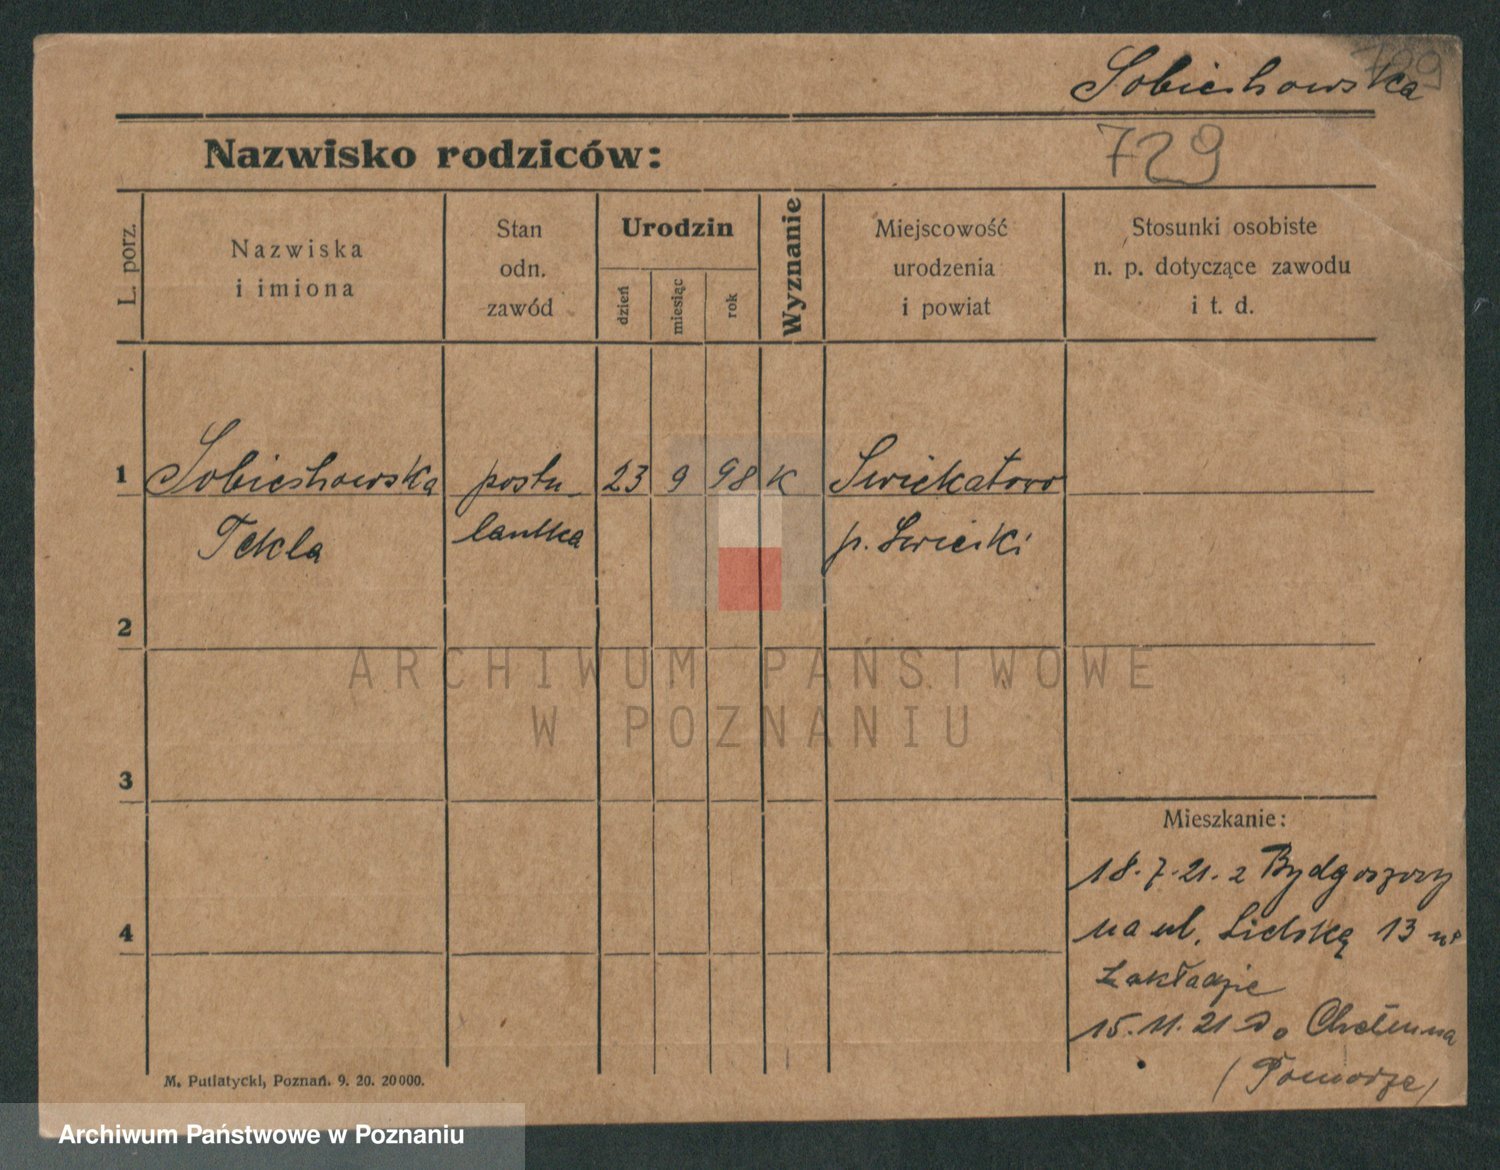 729
Sobieshowska
Nazwisko rodziców:
729
L. porz.
Nazwiska
i imiona
Stan
odn.
zawód
Urodzin
dzień
miesiąc
rok
Wyznanie
Miejscowość
urodzenia
i powiat
Stosunki osobiste
n. p. dotyczące zawodu
i t. d.
1 Sobieshowska postu- 23 9 98 K Swiekatowo
Tekla lantka p. Swiecki
2
ARCHIWUM PAŃSTWOWE
W POZNANIU
3
Mieszkanie:
18.7.21. z Bydgoszczy
4
na ul. 13
Zakładzie
15.11.21 Do Chełmna
(Pomorze)
M. Putiatycki, Poznań. 9. 20. 20000.
Archiwum Państwowe w Poznaniu